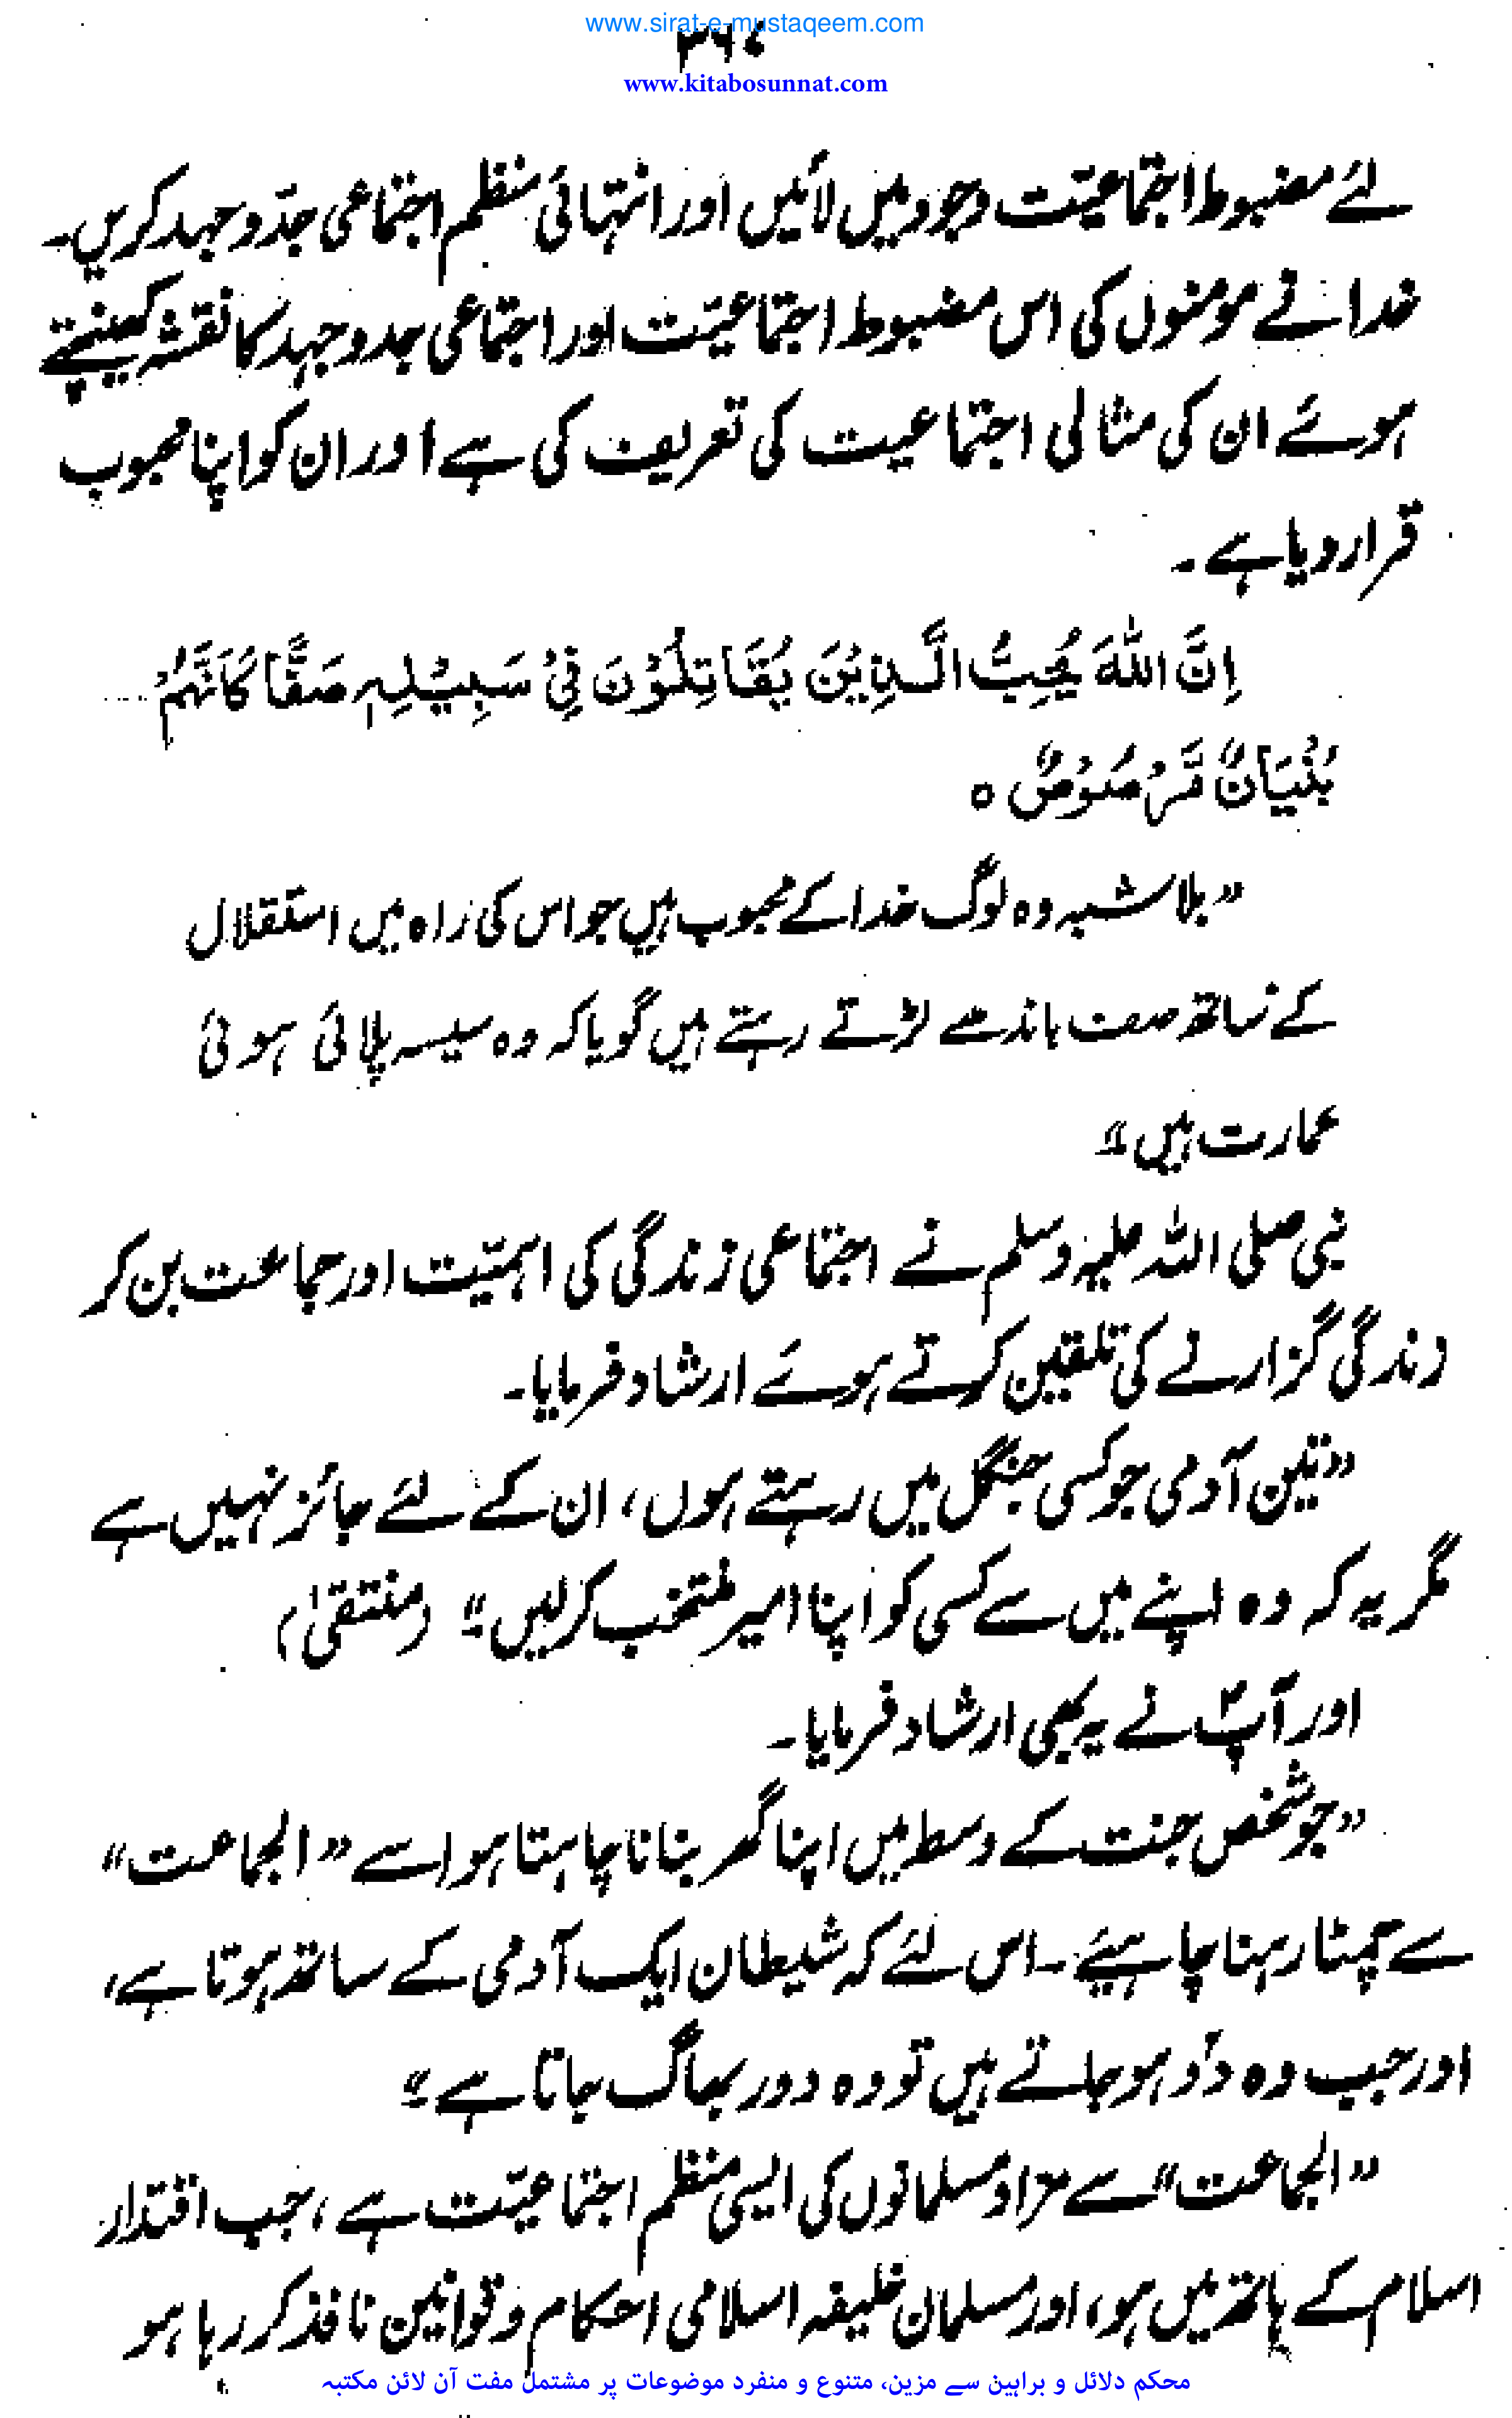 www.sirat-e-mustaqeem.com
۳۶۰
www.kitabosunnat.com
لئے مضبوط اجتماعیّت وجود میں لائیں اور انتہائی منظم اجتماعی جدّوجہد کریں۔
خدا نے مومنوں کی اس مضبوط اجتماعیّت اور اجتماعی جدوجہد کا نقشہ کھینچتے
ہوئے ان کی مثالی اجتماعیت کی تعریف کی ہے اور ان کو اپنا محبوب
قرار دیا ہے۔
اِنَّ اللّٰهَ يُحِبُّ الَّذِيْنَ يُقَاتِلُوْنَ فِيْ سَبِيْلِهٖ صَفًّا كَاَنَّهُمْ
بُنْيَانٌ مَّرْصُوْصٌ ○
”بلاشبہ وہ لوگ خدا کے محبوب ہیں جو اس کی راہ میں استقلال
کے ساتھ صف باندھے لڑتے رہتے ہیں گویا کہ وہ سیسہ پلائی ہوئی
عمارت ہیں“
نبی صلی اللہ علیہ وسلم نے اجتماعی زندگی کی اہمیّت اور جماعت بن کر
زندگی گزارنے کی تلقین کرتے ہوئے ارشاد فرمایا۔
”تین آدمی جو کسی جنگل میں رہتے ہوں، ان کے لئے جائز نہیں ہے
مگر یہ کہ وہ اپنے میں سے کسی کو اپنا امیر منتخب کرلیں“ (منتقیٰ)
اور آپؐ نے یہ بھی ارشاد فرمایا۔
”جو شخص جنت کے وسط میں اپنا گھر بنانا چاہتا ہو اسے ”الجماعت“
سے چمٹا رہنا چاہیئے۔ اس لئے کہ شیطان ایک آدمی کے ساتھ ہوتا ہے،
اور جب وہ دُو ہو جاتے ہیں تو وہ دور بھاگ جاتا ہے“
”الجماعت“ سے مراد مسلمانوں کی ایسی منظم اجتماعیّت ہے، جب اقتدار
اسلام کے ہاتھ میں ہو، اور مسلمان خلیفہ اسلامی احکام و قوانین نافذ کر رہا ہو
محکم دلائل و براہین سے مزین، متنوع و منفرد موضوعات پر مشتمل مفت آن لائن مکتبہ